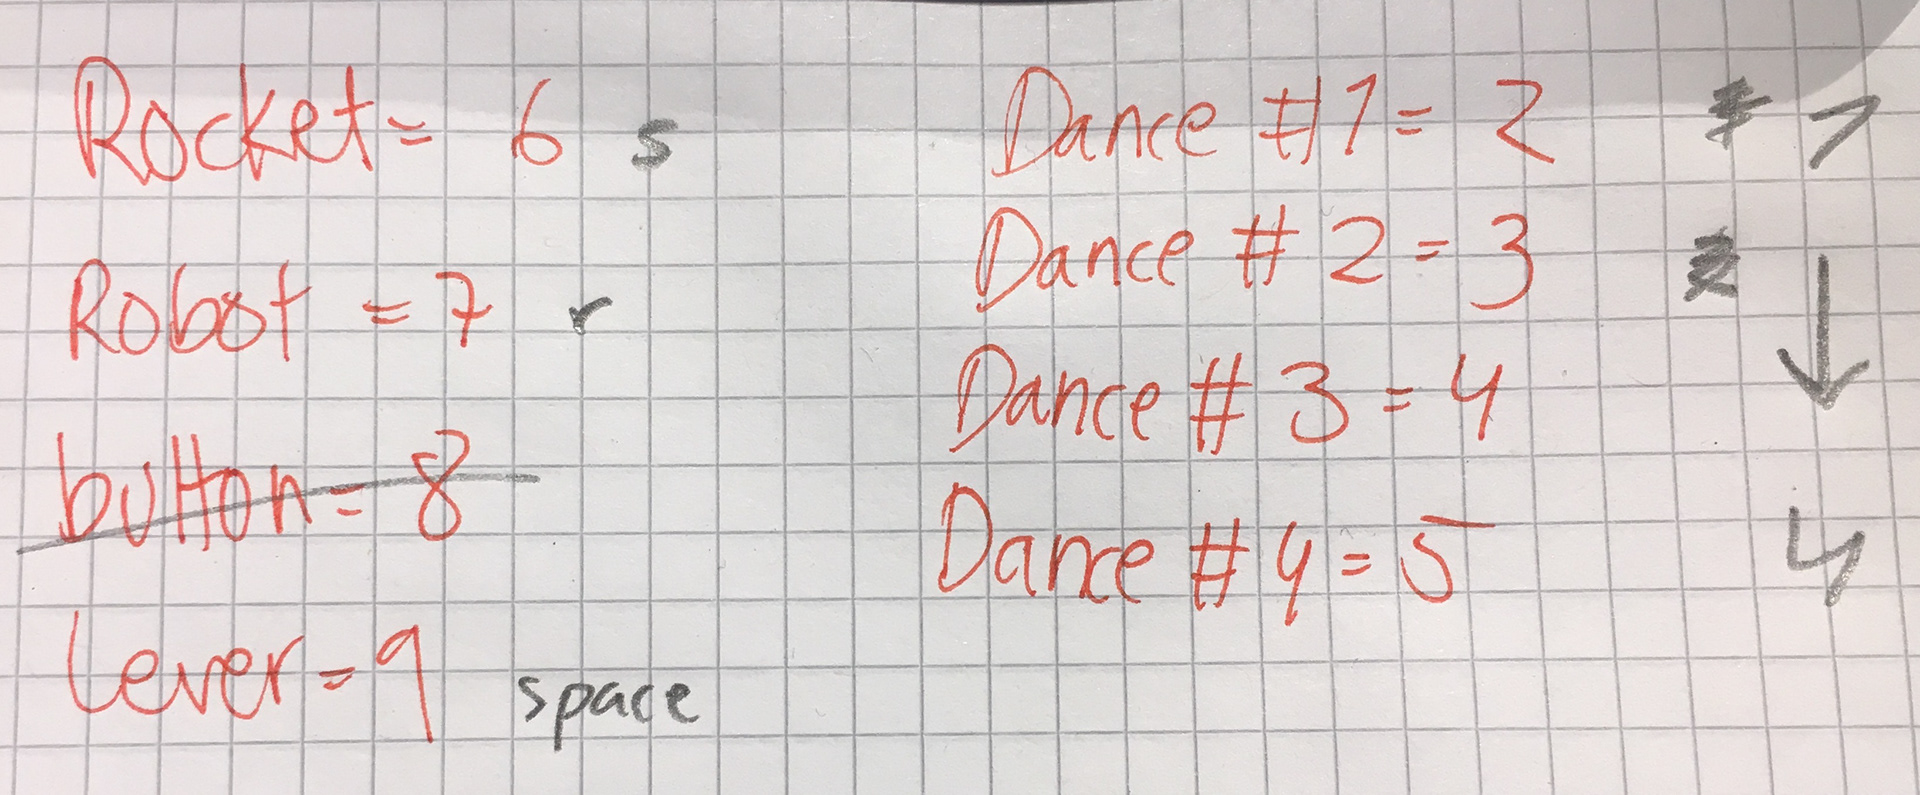 Rocket = 6 s
Robot = 7 r
button = 8
Lever = 9 space
Dance #1 = 2 1
Dance # 2 = 3 ↓
Dance # 3 = 4
Dance # 4 = 5 4